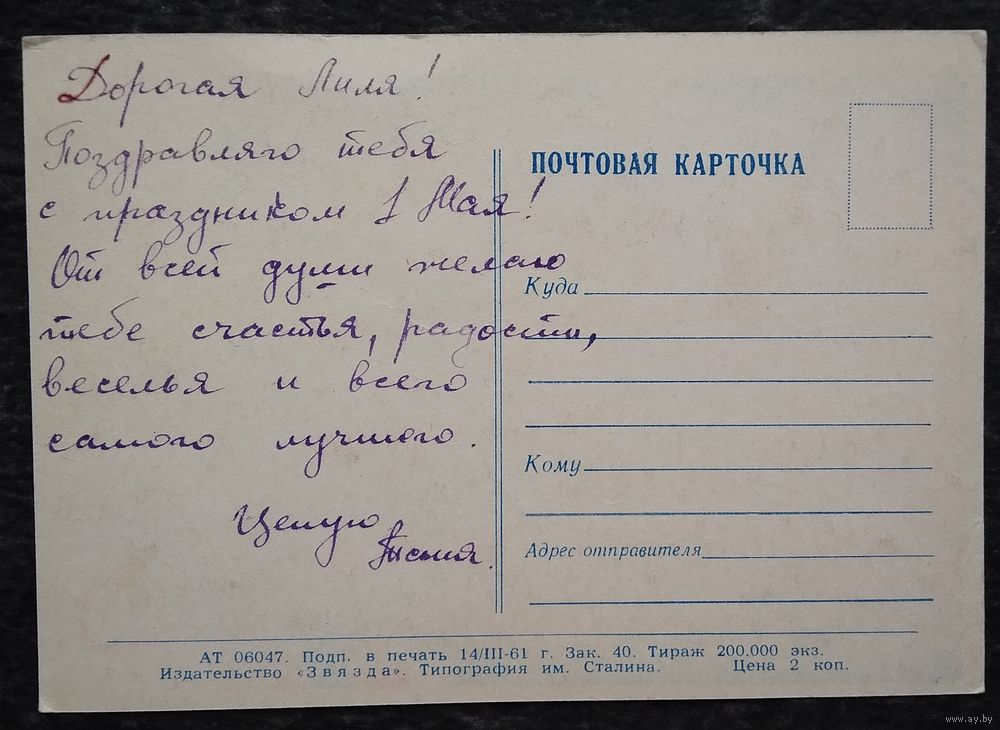 Дорогая Лиля!
Поздравляю тебя
с праздником 1 Мая!
От всей души желаю
тебе счастья, радости,
веселья и всего
самого лучшего.
Целую
ПОЧТОВАЯ КАРТОЧКА
Куда
Кому
Адрес отправителя
АТ 06047. Подп. в печать 14/III-61 г. Зак. 40. Тираж 200.000 экз.
Издательство «Звязда». Типография им. Сталина. Цена 2 коп.
www.ay.by